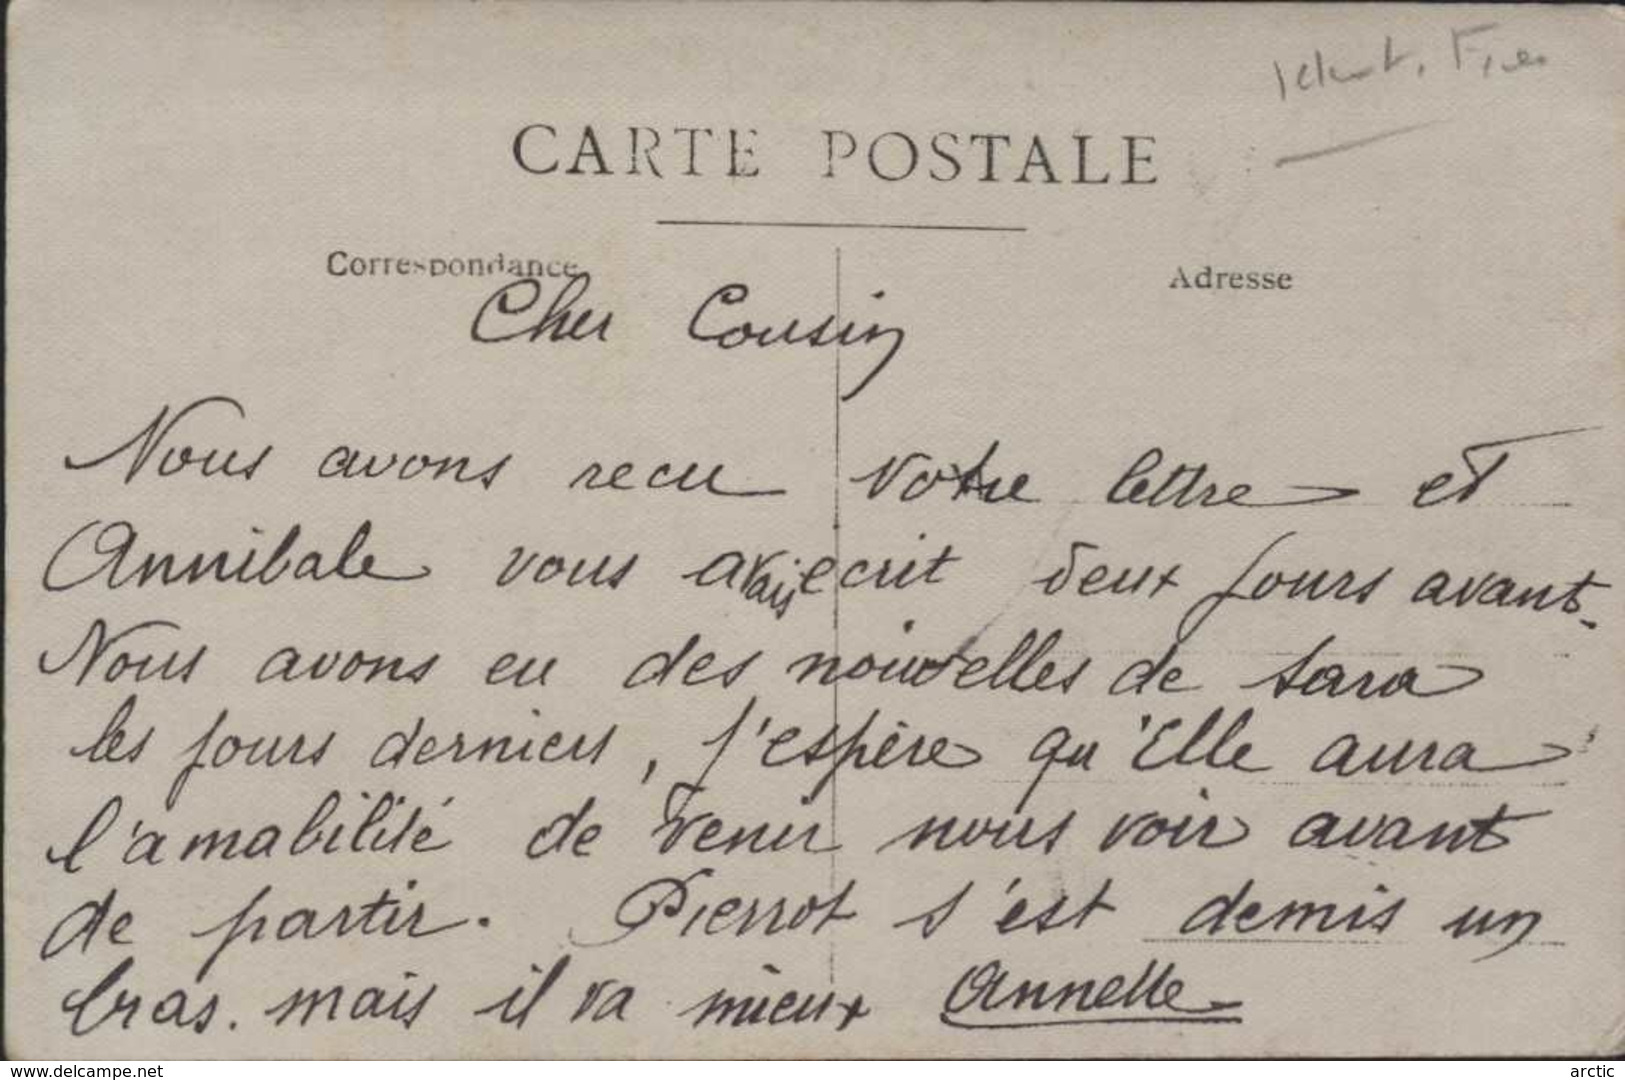 CARTE POSTALE
Correspondance
Adresse
Cher Cousin
Nous avons recu votre lettre et
Annibale vous avais ecrit deux jours avant.
Nous avons eu des nouvelles de Sara
les jours derniers, j'espère qu'Elle aura
l'amabilité de venir nous voir avant
de partir. Pierrot s'est demis un
bras. mais il va mieux Annette
https://www.delcampe.net
arctic